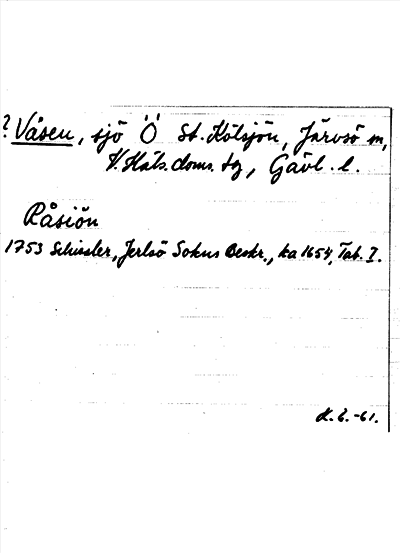 ? Våsen, sjö Ö St. Kölsjön, Järvsö sn,
V. Häls. doms. tg, Gävl. l.
Råsiön
1753 Schissler, Jerlsö Sokns Beskr., ka 1654, Tab. I.
K.E.-61.